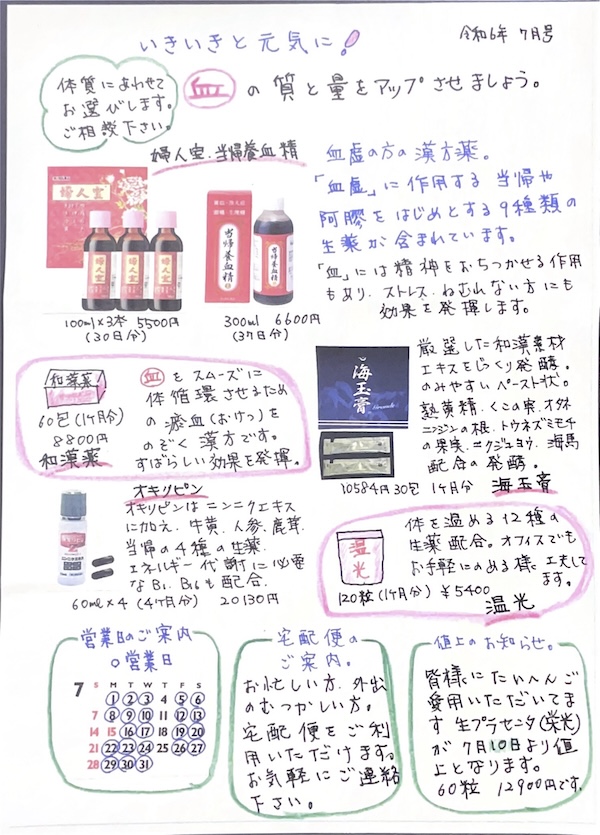 令和6年 7月号
いきいきと元気に!
体質にあわせて
お選びします。
ご相談下さい。
血の質と量をアップさせましょう。
婦人宝.当帰養血精
婦人宝
婦人宝
婦人宝
婦人宝
当帰養血精
当帰養血精
100ml×3本 5500円
(30日分)
300ml 6600円
(37日分)
血虚の方の漢方薬。
「血虚」に作用する当帰や
阿膠をはじめとする9種類の
生薬が含まれています。
「血」には精神をおちつかせる作用
もあり、ストレス、ねむれない方にも
効果を発揮します。
和漢薬
60包(1ヶ月分)
8800円
和漢薬
血をスムーズに
体循環させるため
の瘀血(おけつ)を
のぞく漢方です。
すばらしい効果を発揮。
海玉膏
厳選した和漢素材
エキスをじっくり発酵。
のみやすいペースト状。
熟黄精、くこの実、オタネ
ニンジンの根、トウネズミモチ
の果実、ニクジュヨウ、海馬
配合の発酵。
10584円 30包 1ヶ月分 海玉膏
オキソピン
オキソピンはニンニクエキス
に加え、牛黄、人参、鹿茸、
当帰の4種の生薬、
エネルギー代謝に必要
なB1、B6も配合。
60ml×4(4ヶ月分) 20130円
温光
120粒(1ヶ月分) ¥5400
体を温める12種の
生薬配合。オフィスでも
お手軽にのめる様に工夫して
ます。
温光
営業日のご案内
○営業日
7 S M T W T F S
1 2 3 4 5 6
7 8 9 10 11 12 13
14 15 16 17 18 19 20
21 22 23 24 25 26 27
28 29 30 31
宅配便の
ご案内。
お忙しい方、外出
のむつかしい方。
宅配便をご利
用いただけます。
お気軽にご連絡
下さい。
値上のお知らせ。
皆様にたいへんご
愛用いただいてま
す生プラセンタ(栄光)
が7月10日より値
上となります。
60粒 12900円です。